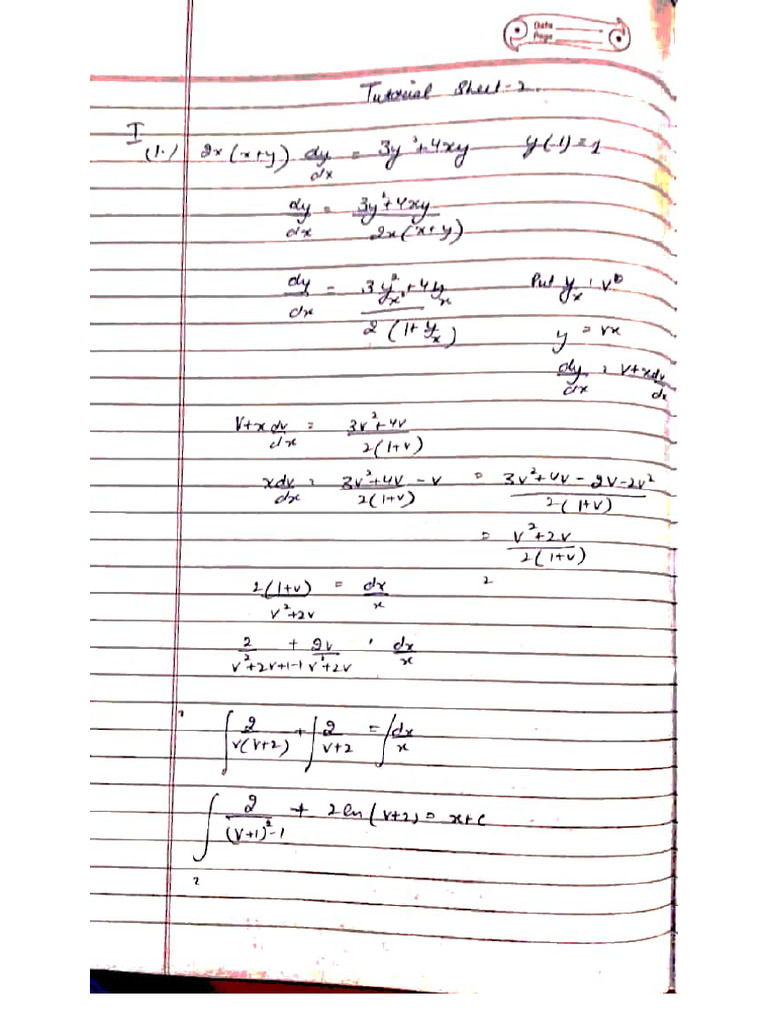 Date
Page
Tutorial Sheet-2.
I
(1.) 2x(x+y) dy/dx = 3y²+4xy y(1)=1
dy/dx = 3y²+4xy / 2x(x+y)
dy/dx = 3y²/x²+4y/x / 2(1+y/x) Put y/x = v
y = vx
dy/dx = v+xdv/dx
V+x dv/dx = 3v²+4v / 2(1+v)
xdv/dx = 3v²+4v / 2(1+v) - v = 3v²+4v-2v-2v² / 2(1+v)
= v²+2v / 2(1+v)
2(1+v) / v²+2v = dx/x
2 / v²+2v+1-1 + 2v / v²+2v = dx/x
∫ 2 / v(v+2) + ∫ 2 / v+2 = ∫ dx/x
∫ 2 / (v+1)²-1 + 2ln(v+2) = x+c